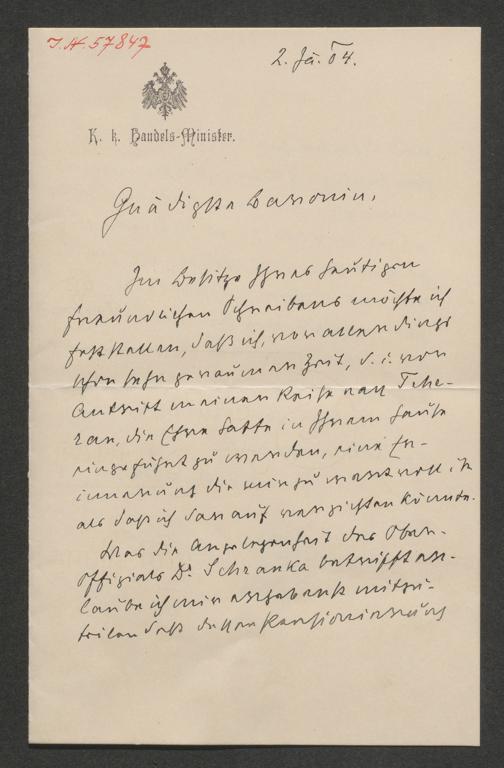 I.N. 57847
2. Jä. 04.
K. k. Handels-Minister.
Gnädigste Baronin,
Im Besitze Ihres heutigen
freundlichen Schreibens möchte ich
feststellen, daß ich, vor allerdings
schon sehr geraumer Zeit, d. i. vor
Antritt meiner Reise nach Tehe-
ran, die Ehre hatte in Ihrem Hause
eingeführt zu werden, eine Er-
innerung die mir zu wertvoll ist
als daß ich darauf verzichten könnte.
Was die Angelegenheit des Ober-
offizials Dr Schranka betrifft er-
laube ich mir ergebenst mitzu-
teilen daß dessen Pensionierung